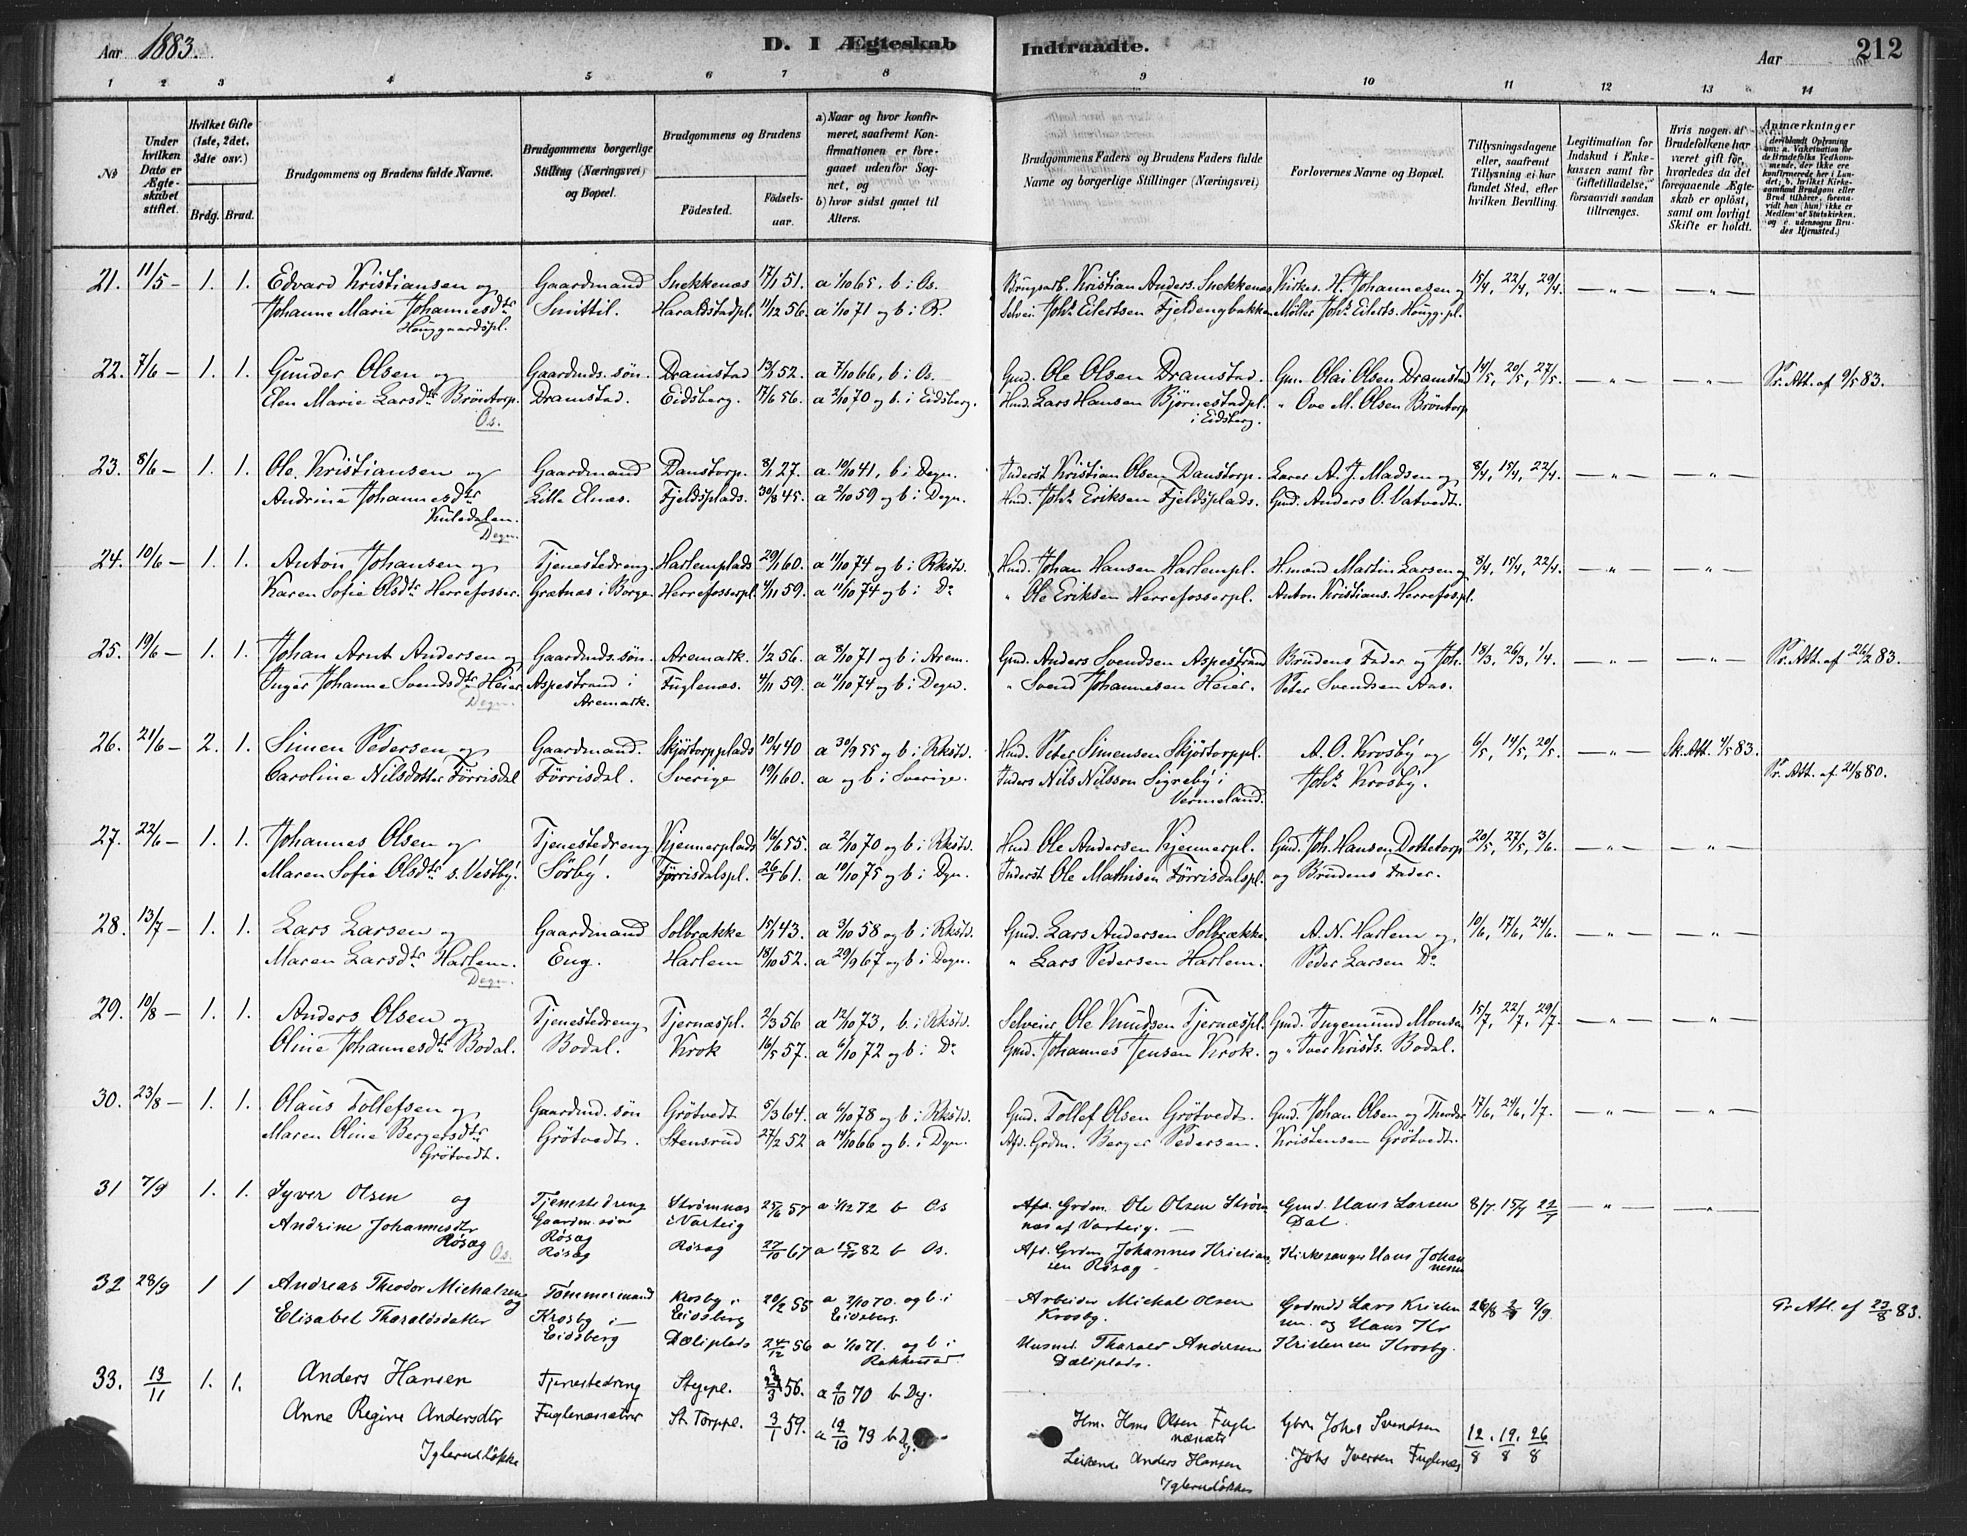 Aar 1883. D. I Ægteskab Indtraadte. Aar 212
1 2 3 4 5 6 7 8 9 10 11 12 13 14
No
Under hvilken Dato er Ægteskabet stiftet.
Hvilket Gifte (1ste, 2det, 3die osv.)
Brdg. Brud.
Brudgommens og Brudens fulde Navne.
Brudgommens borgerlige Stilling (Næringsvei) og Bopæl.
Brudgommens og Brudens
Fødested. Fødselsaar.
a) Naar og hvor konfirmeret, saafremt Konfirmationen er foregaaet udenfor Sognet, og
b) hvor sidst gaaet til Alters.
Brudgommens Faders og Brudens Faders fulde Navne og borgerlige Stillinger (Næringsvei)
Forlovernes Navne og Bopæl.
Tillysningsdagene eller, saafremt Tillysning ei har fundet Sted, efter hvilken Bevilling.
Legitimation for Indskud i Enkekassen samt for Giftetilladelse, forsaavidt saadan tiltrænges.
Hvis nogen af Brudefolkene har været gift før, hvorledes da det foregaaende Ægteskab er opløst, samt om lovligt Skifte er holdt.
Anmærkninger
21. 11/5 – 1. 1. Edvard Kristiansen og Gaardmand Snekkenæs 17/1 51. a 1/10 65. b i Os. Kristian Anders. Snekkenæs Kirkes. H. Johannesen og 15/4, 22/4, 29/4.
Johanne Marie Johannesdtr Smittil. Haraldstadpl. 11/12 56. a 1/10 71 og b i R. Selvei. Johs Eilertsen Fjeldengbakken Møller Johs Eilerts. Hougg.pl.
Houggaardspl.
22. 7/6 – 1. 1. Gunder Olsen og Gaardmds. søn Dramstad 13/1 52. a 7/10 66, b i Os. Gmd. Ole Olsen Dramstad. Gm. Olai Olsen Dramstad 14/5, 20/5, 27/5. Pr. Att. af 9/5 83.
Elen Marie Larsdtr Brøntorp. Dramstad. Eidsberg. 17/6 56. a 2/10 70 og b. i Eidsberg. Hmd. Lars Hansen Bjørnestadpl. " Ove M. Olsen Brøntorp
Os. i Eidsberg.
23. 8/6 – 1. 1. Ole Kristiansen og Gaardmand Danstorp. 8/1 27. a 10/10 41, b i Degn. Inderst Kristian Olsen Danstorp. Lærer A. J. Madsen og 8/4, 15/4, 22/4.
Andrine Johannesdtr Lille Elnæs. Fjeldsplads. 30/8 45. a 2/10 59 og b i Degn. Hmd. Johs Eriksen Fjeldsplads. Gmd. Anders O. Vatvedt.
Kuledalen.
Degn.
24. 10/6 – 1. 1. Anton Johansen og Tjenestedreng. Harlemplads 29/1 60. a 11/10 74 og b i Rkstd. Hmd. Johan Hansen Harlempl. H.mand Martin Larsen og 8/4, 15/4, 22/4.
Karen Sofie Olsdtr Herrefosser. Grætnæs i Borge Herrefosserpl. 4/11 59. a 11/10 74 og b i Do " Ole Eriksen Herrefosserpl. Anton Kristians. Herrefos.pl.
25. 19/6 – 1. 1. Johan Arnt Andersen og Gaardmds. søn Aremark. 1/2 56. a 8/10 71 og b i Arem. Gmd. Anders Svendsen Aspestrand Brudens Fader og Joh. 18/3, 26/3, 1/4. Pr. Att. af 26/2 83.
Inger Johanne Svendsdtr Heier Aspestrand i Fuglenæs. 4/11 59. a 11/10 74 og b i Degn. " Svend Johannesen Heier. Peter Svendsen Aas.
Degn. Aremark.
26. 21/6 – 2. 1. Simen Pedersen og Gaardmand. Skjørtorpplads 10/4 40 a 30/9 55 og b i Rkstd. Hmd. Peter Simensen Skjørtorppl. A. O. Krosby og 6/5, 14/5, 20/5. Sk. Att. 4/5 83.
Caroline Nilsdotter Førrisdal Førrisdal. Sverige 19/1 60. a og b i Sverige. Inders Nils Nilsson Sigreby i Johs Krosby. Pr. Att. af 21/8 80.
Vermeland.
27. 22/6 – 1. 1. Johannes Olsen og Tjenestedreng Kjennerplads 16/6 55. a 2/10 70 og b i Rkstd. Hmd Ole Andersen Kjennerpl. Gmd. Joh. Hansen Dettetorp 20/5, 27/5, 3/6.
Maren Sofie Olsdtr s. Vestby. Sørby. Førrisdalspl. 26/1 61. a 10/10 75 og b i Dgn. Inderst Ole Mathisen Førrisdalspl. og Brudens Fader.
28. 13/7 – 1. 1. Lars Larsen og Gaardmand Solbrække 15/1 43. a 3/10 58 og b i Rkstd. Gmd. Lars Andersen Solbrække. A. N. Harlem og 10/6, 17/6, 24/6.
Maren Larsdtr Harlem. Eng. Harlem 18/10 52. a 29/9 67 og b i Degn. " Lars Pedersen Harlem. Peder Larsen Do
Degn.
29. 10/8 – 1. 1. Anders Olsen og Tjenestedreng Tjernæspl. 2/3 56 a 12/10 73, b. i Rkstd. Selveier Ole Knudsen Tjernæspl. Gmd. Ingemund Monsen 15/7, 22/7, 29/7.
Oline Johannesdtr Bodal. Bodal. Krok 16/5 57. a 6/10 72 og b i Do Gmd. Johannes Jensen Krok. og " Iver Krists. Bodal.
30. 23/8 – 1. 1. Olaus Tollefsen og Gaardmd. søn Grøtvedt 5/3 64. a 6/10 78 og b i Rkstd. Gmd. Tollef Olsen Grøtvedt. Gmd. Johan Olsen og Theodor 17/6, 24/6, 1/7.
Maren Oline Bergersdtr Grøtvedt. Stensrud 27/2 52 a 14/10 66 og b. i Dgn. Afd. Grdm. Berger Pedersen. Kristensen Grøtvedt.
Grøtvedt.
31 7/9 1. 1. Syver Olsen og Tjenestedreng Strømnæs 25/6 57 a 1/12 72 b Os Afd. Grdm. Ole Olsen Strømnæs af Varteig. Gmd Hans Larsen Dal 8/7. 15/7 22/7
Gaardm. søn i Varteig
Andrine Johannesdtr Røsæg Røsæg Røsæg Røsæg 27/10 67 a 15/10 82 b Os. Afd. Grdm Johannes Kristiansen Røsæg. Kirkesanger Hans Johannesen
Os.
32 28/9 1 1 Andreas Theodor Michalsen og Tømmermand Krosby i Eidsberg 20/2 55 a 2/10 70. og b i Eidsberg. Arbeider Mickal Olsen Krosby. Grdmd Lars Kristensen. og Hans Kr 26/8 2/9 9/9 Pr. Att. af 23/8 83.
Elisabet Tharaldsdatter Krosby i Eidsberg Dæliplads 24/12 56 a 1/10 71. og b i Rakkestad. Husmd Tharald Andersen Dæliplads. Kristensen Krosby.
33. 13/11 1. 1. Anders Hansen Tjenestedreng Stegepl. 56. a 2/10 70 b Dg. Hm. Hans Olsen Fuglenæsæter Johs Svendsen 12/8. 19/8. 26/8
Anne Regine Andersdtr Fuglenæssæter St. Torppl. 3/1 59. a 12/10 79 b Dg. Leikende Anders Hansen Johs Iversen Fuglenæs
Iglerudløkke Iglerudløkken